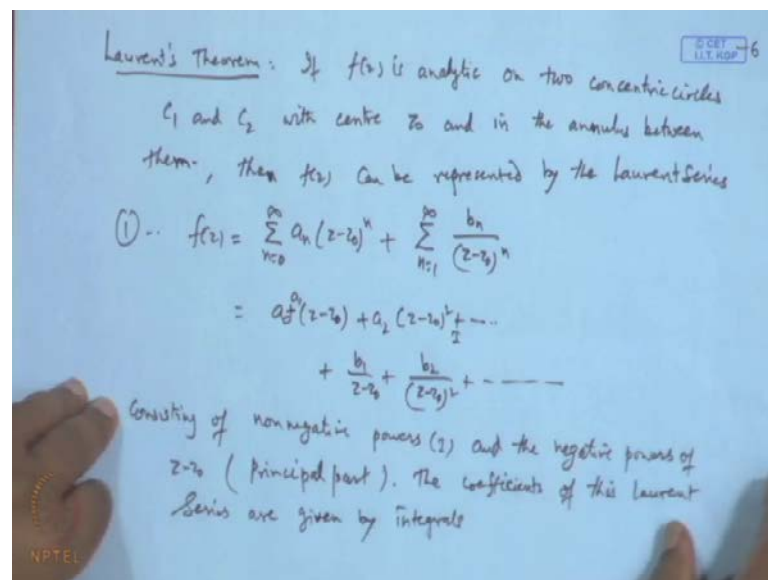 Laurent's Theorem: If f(z) is analytic on two concentric circles
© CET
I.I.T. KGP
-6
C₁ and C₂ with centre z₀ and in the annulus between
them, then f(z) can be represented by the Laurent Series
① .. f(z) = ∑_{n=0}^{∞} aₙ (z-z₀)ⁿ + ∑_{n=1}^{∞} bₙ/(z-z₀)ⁿ
= a₀+a₁(z-z₀) + a₂ (z-z₀)² + ....
+ b₁/(z-z₀) + b₂/(z-z₀)² + - - - - -
Consisting of nonnegative powers (I) and the negative powers of
z-z₀ ( Principal part ). The coefficients of this Laurent
Series are given by integrals
NPTEL